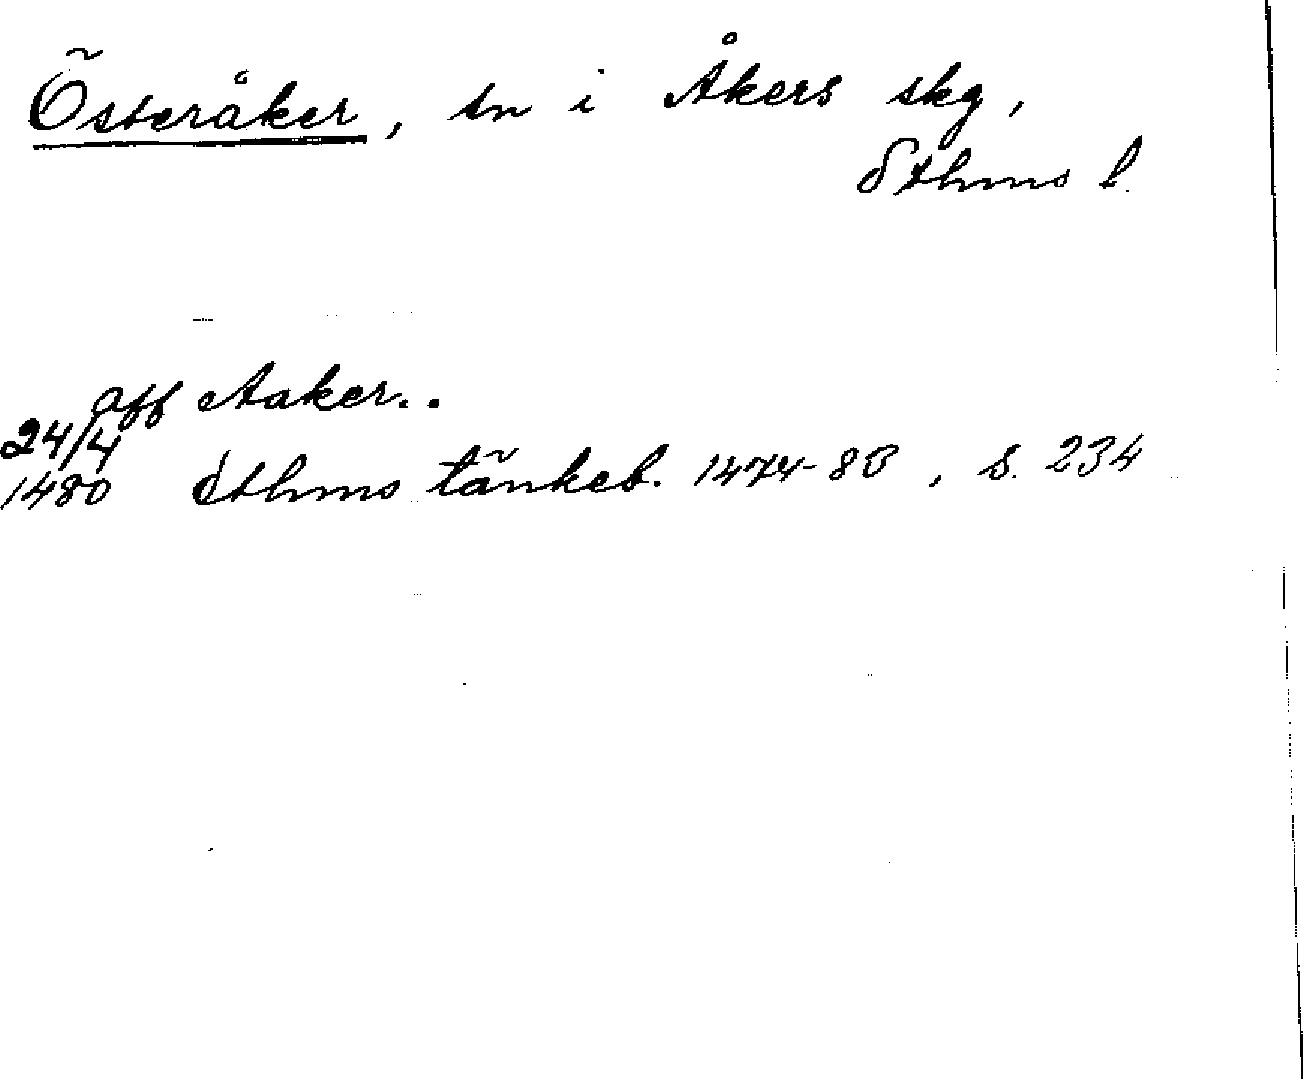 Österåker, sn i Åkers skg,
Sthms l.
aff Aaker..
24/4
1480 Sthms tänkeb. 1474-83, s. 234